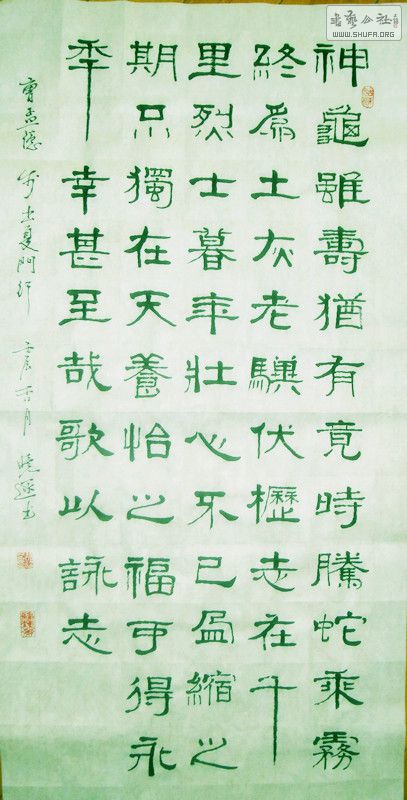 神龜雖壽猶有竟時騰蛇乘霧
終爲土灰老驥伏櫪志在千
里烈士暮年壯心不已盈縮之
期只獨在天養怡之福可得永
年幸甚至哉歌以詠志
曹孟德步出夏門行壬辰
書藝公社
WWW.SHUFA.ORG